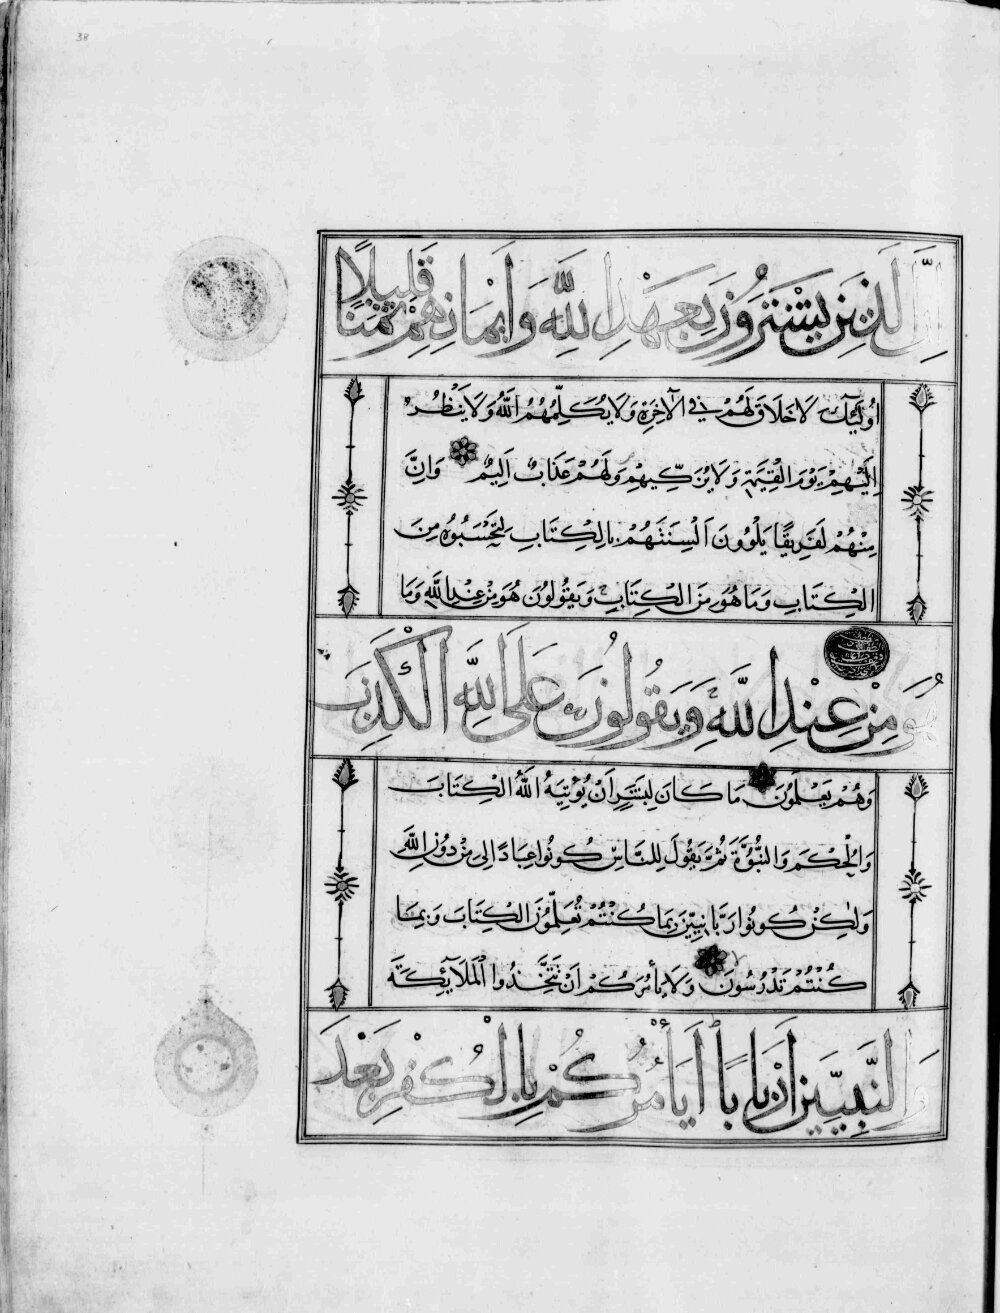 38
اِنَّ الَّذِينَ يَشْتَرُونَ بِعَهْدِ اللّٰهِ وَاَيْمَانِهِمْ ثَمَنًا قَلِيلًا
اُولٰٓئِكَ لَاخَلَاقَ لَهُمْ فِي الْاٰخِرَةِ وَلَا يُكَلِّمُهُمُ اللّٰهُ وَلَا يَنْظُرُ
اِلَيْهِمْ يَوْمَ الْقِيٰمَةِ وَلَا يُزَكِّيهِمْ وَلَهُمْ عَذَابٌ اَلِيمٌ وَاِنَّ
مِنْهُمْ لَفَرِيقًا يَلْوُونَ اَلْسِنَتَهُمْ بِالْكِتَابِ لِتَحْسَبُوهُ مِنَ
الْكِتَابِ وَمَا هُوَ مِنَ الْكِتَابِ وَيَقُولُونَ هُوَ مِنْ عِنْدِ اللّٰهِ وَمَا
هُوَ مِنْ عِنْدِ اللّٰهِ وَيَقُولُونَ عَلَى اللّٰهِ الْكَذِبَ
وَهُمْ يَعْلَمُونَ مَا كَانَ لِبَشَرٍ اَنْ يُؤْتِيَهُ اللّٰهُ الْكِتَابَ
وَالْحُكْمَ وَالنُّبُوَّةَ ثُمَّ يَقُولَ لِلنَّاسِ كُونُوا عِبَادًا لِي مِنْ دُونِ اللّٰهِ
وَلٰكِنْ كُونُوا رَبَّانِيِّينَ بِمَا كُنْتُمْ تُعَلِّمُونَ الْكِتَابَ وَبِمَا
كُنْتُمْ تَدْرُسُونَ وَلَا يَأْمُرَكُمْ اَنْ تَتَّخِذُوا الْمَلَآئِكَةَ
وَالنَّبِيِّينَ اَرْبَابًا اَيَأْمُرُكُمْ بِالْكُفْرِ بَعْدَ